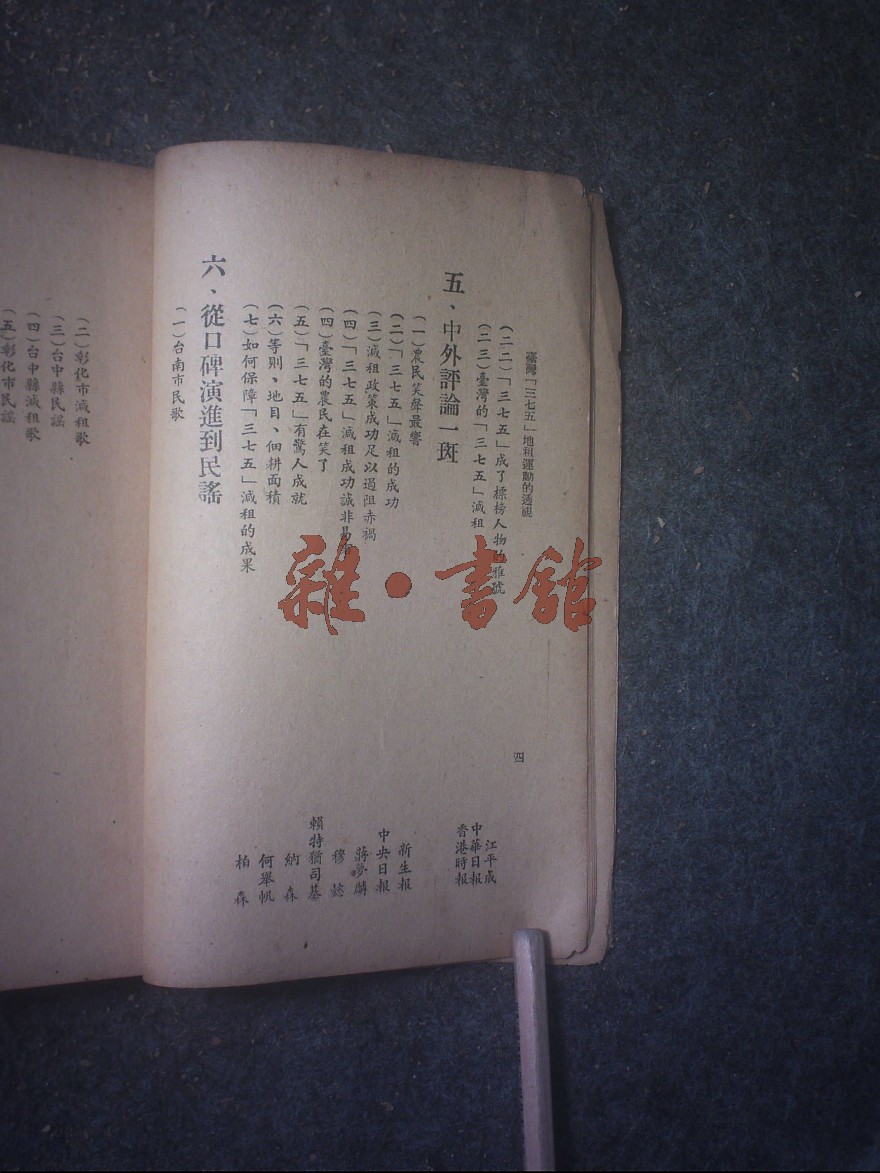 臺灣「三七五」地租運動的透視
四
(二二)「三七五」成了標榜人物的雅號
江平成
中華日報
(二三)臺灣的「三七五」減租
香港時報
五、中外評論一斑
(一)農民笑聲最響
新生報
(二)「三七五」減租的成功
中央日報
(三)減租政策成功足以遏阻赤禍
蔣夢麟
(四)「三七五」減租成功誠非易事
穆懿
(四)臺灣的農民在笑了
賴特猶司基
(五)「三七五」有驚人成就
納森
(六)等則、地目、佃耕面積
何舉帆
(七)如何保障「三七五」減租的成果
柏森
六、從口碑演進到民謠
(一)台南市民歌
(二)彰化市減租歌
(三)台中縣民謠
(四)台中縣減租歌
(五)彰化市民謠
雜·書館